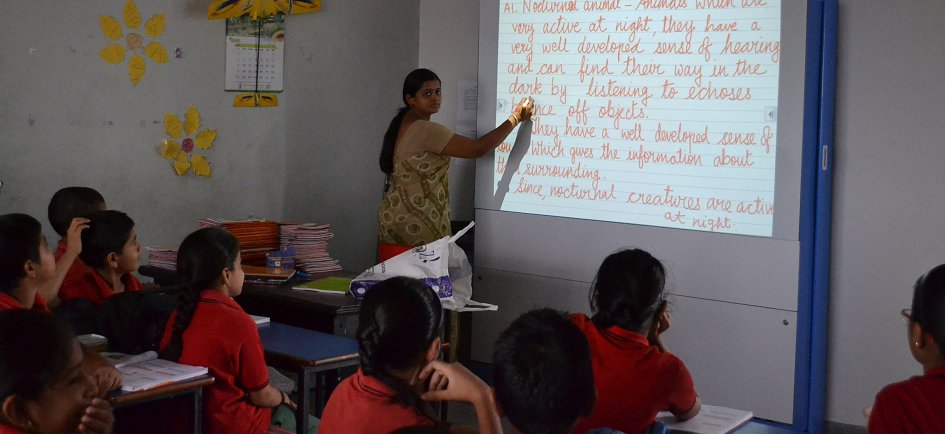 A1. Nocturnal animal - Animals which are
very active at night, they have a
very well developed sense of hearing
and can find their way in the
dark by listening to echoses
off objects.
they have a well developed sense of
which gives the information about
surrounding.
Since, nocturnal creatures are active
at night.